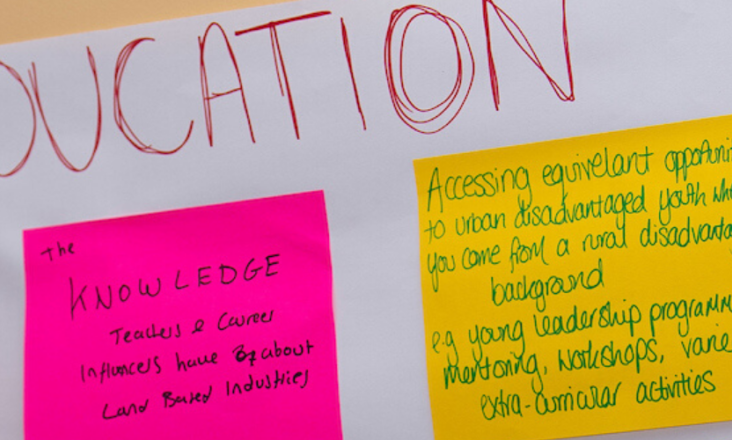 DUCATION
The
KNOWLEDGE
Teachers & Career
Influencers have about
Land Based Industries
Accessing equivelant opportuni
to urban disadvantaged youth wh
you come from a rural disadvanta
background
e.g young leadership programm
mentoring, workshops, varie
extra-curricular activities